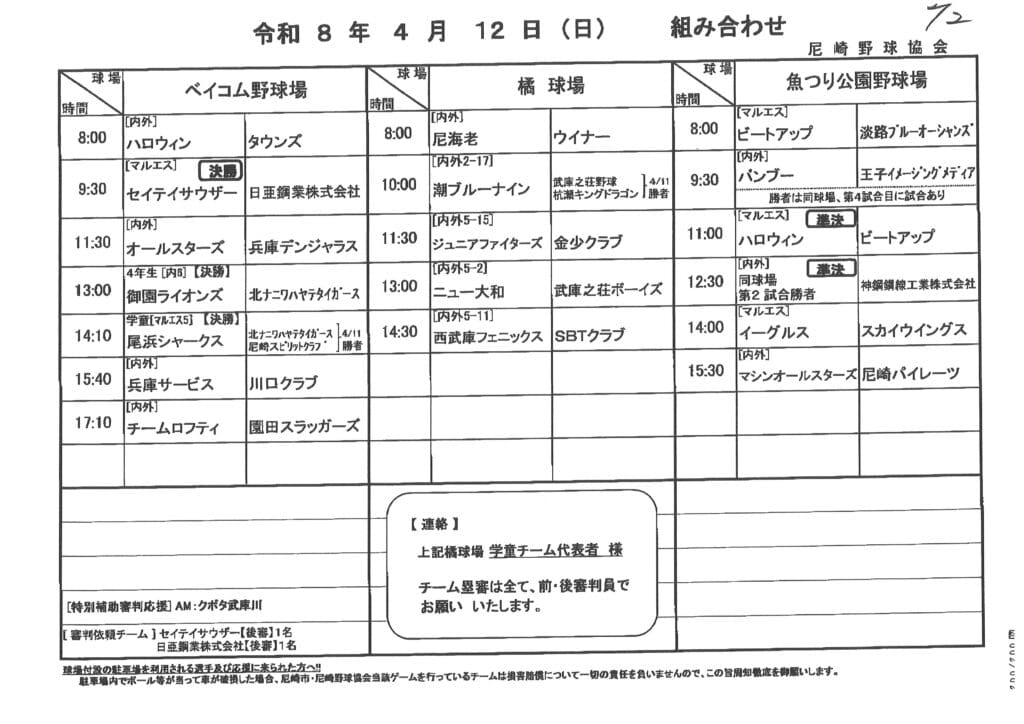 令和 8 年 4 月 12 日 (日) 組み合わせ
尼崎野球協会
球場
時間
ベイコム野球場
8:00
[内外]
ハロウィン
タウンズ
9:30
[マルエス] 決勝
セイテイサウザー
日亜鋼業株式会社
11:30
[内外]
オールスターズ
兵庫デンジャラス
13:00
4年生 [内6] 【決勝】
御園ライオンズ
北ナニワハヤテタイガース
14:10
学童[マルエス5] 【決勝】
尾浜シャークス
北ナニワハヤテタイガース
尼崎スピリットクラブ
4/11
勝者
15:40
[内外]
兵庫サービス
川口クラブ
17:10
[内外]
チームロフティ
園田スラッガーズ
球場
時間
橘 球場
8:00
[内外]
尼海老
ウイナー
10:00
[内外2-17]
潮ブルーナイン
武庫之荘野球
杭瀬キングドラゴン
4/11
勝者
11:30
[内外5-15]
ジュニアファイターズ
金少クラブ
13:00
[内外5-2]
ニュー大和
武庫之荘ボーイズ
14:30
[内外5-11]
西武庫フェニックス
SBTクラブ
球場
時間
魚つり公園野球場
8:00
[マルエス]
ビートアップ
淡路ブルーオーシャンズ
9:30
[内外]
バンブー
王子イメージングメディア
勝者は同球場、第4試合目に試合あり
11:00
[マルエス] 準決
ハロウィン
ビートアップ
12:30
[内外] 準決
同球場
第2試合勝者
神鋼鋼線工業株式会社
14:00
[マルエス]
イーグルス
スカイウイングス
15:30
[内外]
マシンオールスターズ
尼崎パイレーツ
【 連絡 】
上記橘球場 学童チーム代表者 様
チーム塁審は全て、前・後審判員で
お願い いたします。
[特別補助審判応援] AM:クボタ武庫川
[ 審判依頼チーム ] セイテイサウザー【後審】1名
日亜鋼業株式会社【後審】1名
球場付設の駐車場を利用される選手及び応援に来られた方へ!!
駐車場内でボール等が当って車が破損した場合、尼崎市・尼崎野球協会当該ゲームを行っているチームは損害賠償について一切の責任を負いませんので、この旨周知徹底を御願いします。